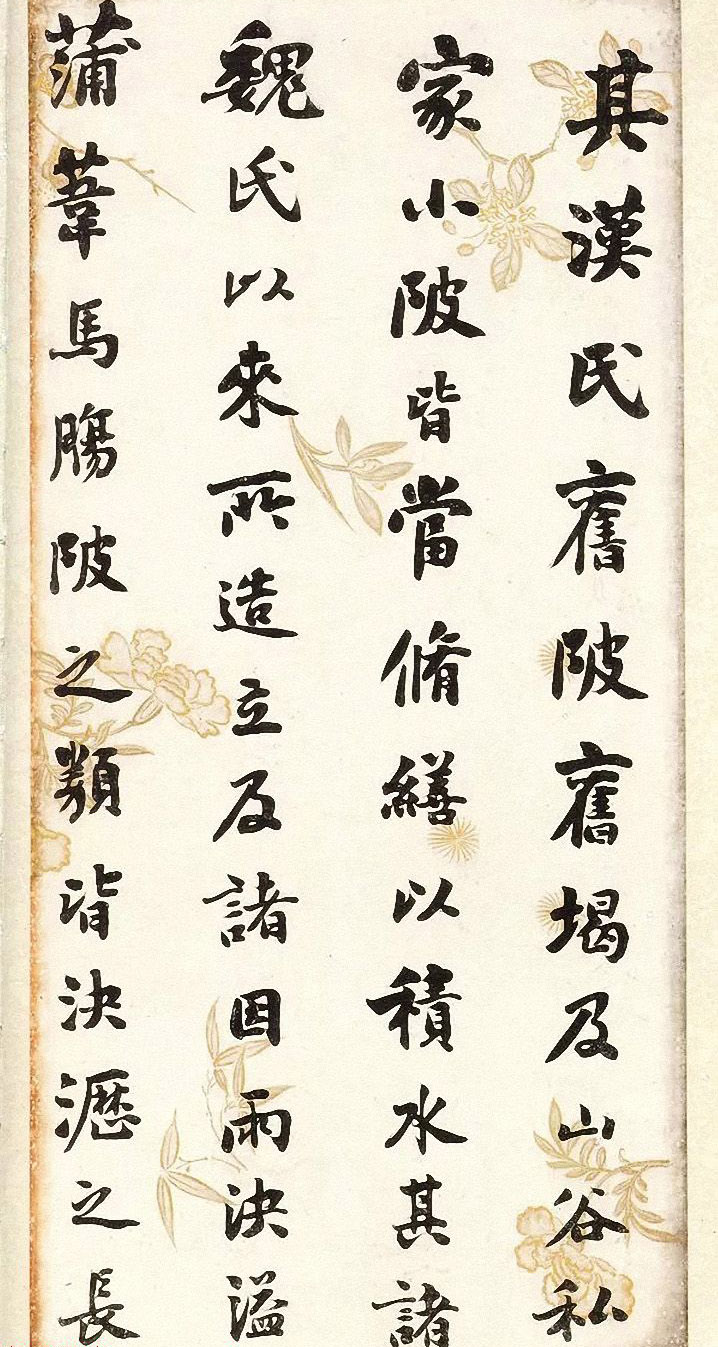 其漢氏舊陂舊堨及山谷私
家小陂皆當脩繕以積水其諸
魏氏以來所造立及諸因雨決溢
蒲葦馬膓陂之類皆決瀝之長